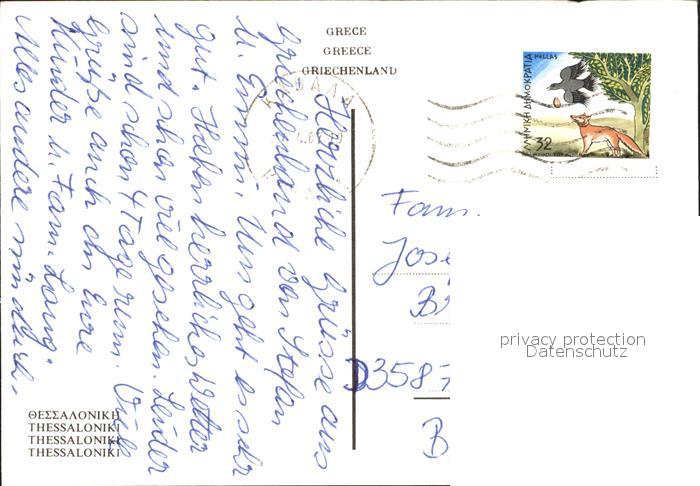 GRECE
GREECE
GRIECHENLAND
Herzliche Grüsse aus
Griechenland von Stefan
u. Emmi. Uns geht es sehr
gut. Haben herrliches Wetter
und schon viel gesehen. Leider
sind schon 4 Tage rum. Viele
Grüße auch an Eure
Kinder u. Fam. Lang.
Alles andere mündlich.
ΘΕΣΣΑΛΟΝΙΚΗ
THESSALONIKI
THESSALONIKI
THESSALONIKI
ΕΛΛΗΝΙΚΗ ΔΗΜΟΚΡΑΤΙΑ HELLAS
32
Fam.
Jose
D3587
B
privacy protection
Datenschutz